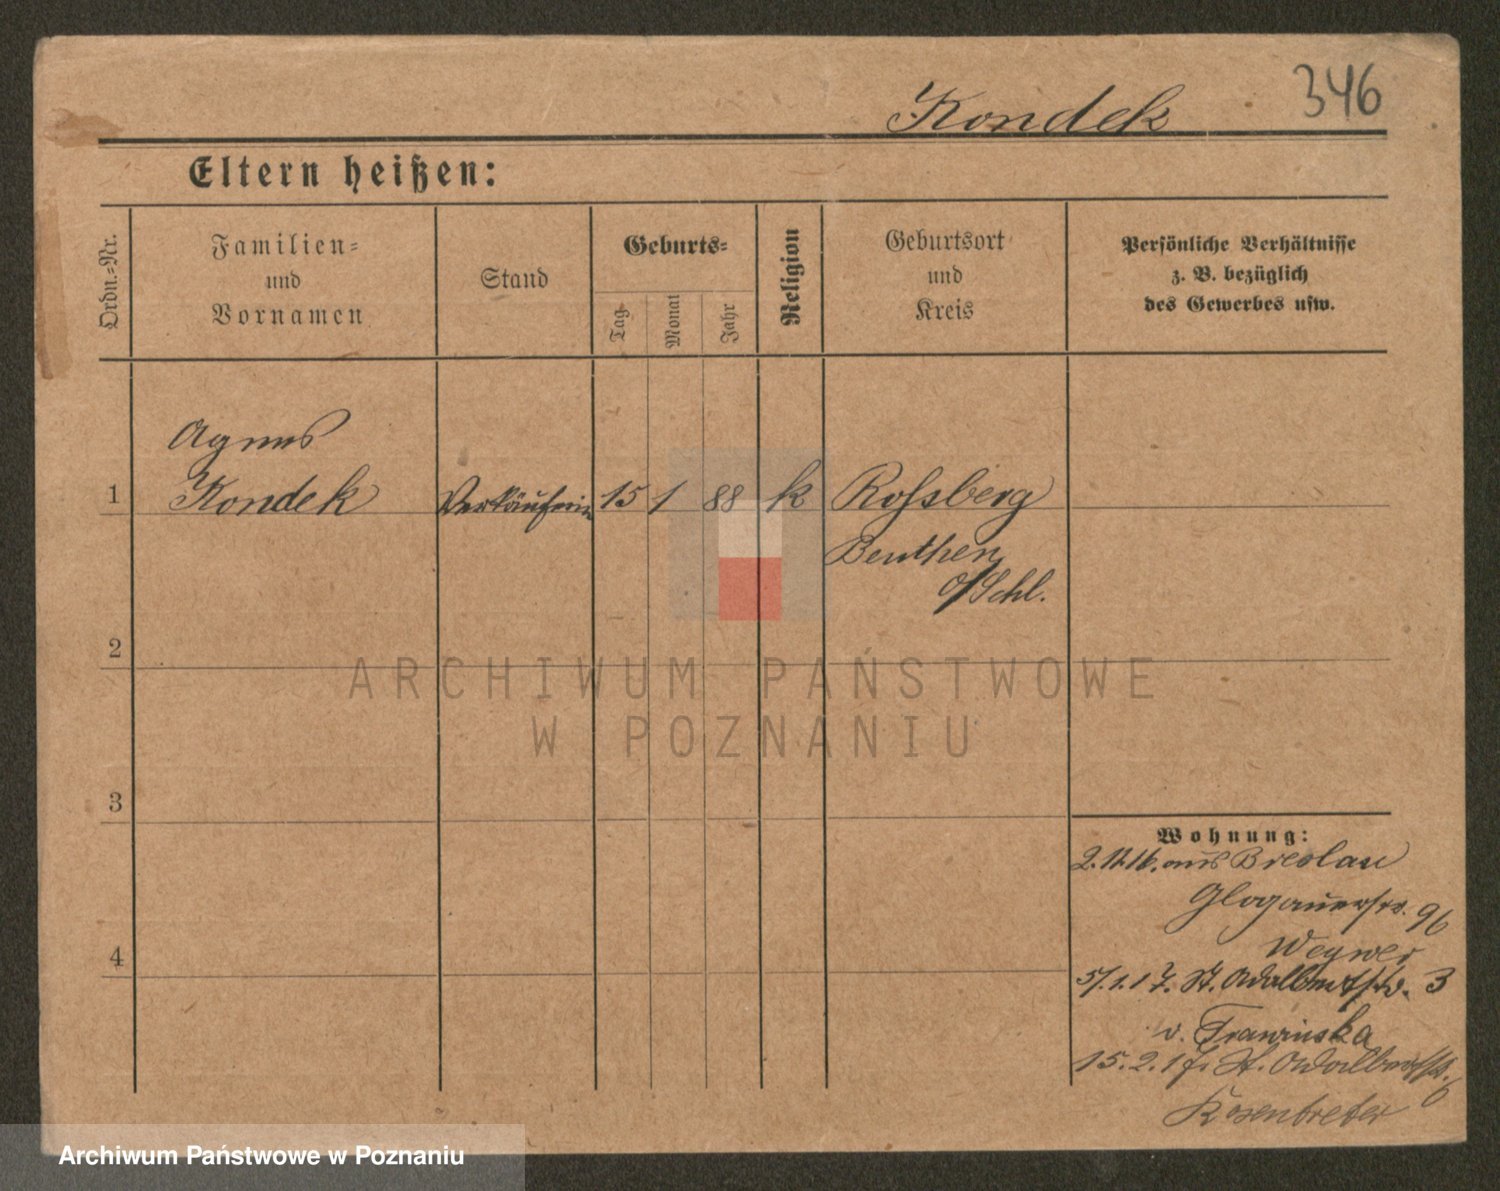 346
Kondek
Eltern heißen:
Ordn.=Nr.
Familien=
und
Vornamen
Stand
Geburts=
Tag
Monat
Jahr
Religion
Geburtsort
und
Kreis
Persönliche Verhältnisse
z. B. bezüglich
des Gewerbes usw.
Agnes
1 Kondek Verkäuferin 15 1 88 k Roßberg
Beuthen
O/Schl.
2
ARCHIWUM PAŃSTWOWE
W POZNANIU
3
Wohnung:
2.12.16. aus Breslau
Glogauerstr. 96
Wegner
4
5.1.17. St. Adalbertstr. 3
v. Frawinska
15.2.17. St. Adalbertstr. 6
Rosentreter
Archiwum Państwowe w Poznaniu